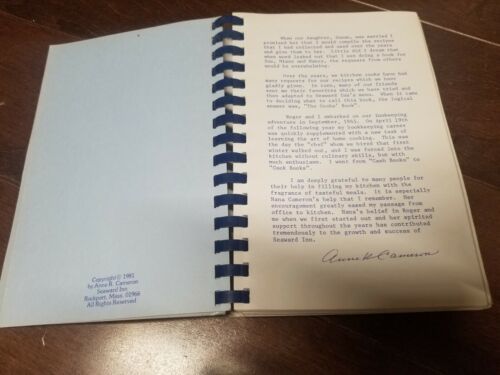 Copyright © 1981
by Anne R. Cameron
Seaward Inn
Rockport, Mass. 01966
All Rights Reserved
When our daughter, Susan, was married I
promised her that I would compile the recipes
that I had collected and used over the years
and give them to her. Little did I dream that
when word leaked out that I was doing a book for
Sue, Diane and Nancy, the requests from others
would be overwhelming.
Over the years, we kitchen cooks have had
many requests for our recipes which we have
gladly given. In turn, many of our friends
sent me their favorites which we have tried and
then adapted to Seaward Inn's menu. When it came
to deciding what to call this book, the logical
answer was, "The Cooks' Book".
Roger and I embarked on our innkeeping
adventure in September, 1945. On April 19th
of the following year my bookkeeping career
was quickly supplemented with a new task of
learning the art of home cooking. This was
the day the "chef" whom we hired that first
winter walked out, and I was forced into the
kitchen without culinary skills, but with
much enthusiasm. I went from "Cash Books" to
"Cook Books".
I am deeply grateful to many people for
their help in filling my kitchen with the
fragrance of tasteful meals. It is especially
Nana Cameron's help that I remember. Her
encouragement greatly eased my passage from
office to kitchen. Nana's belief in Roger and
me when we first started out and her spirited
support throughout the years has contributed
tremendously to the growth and success of
Seaward Inn.
Anne R Cameron